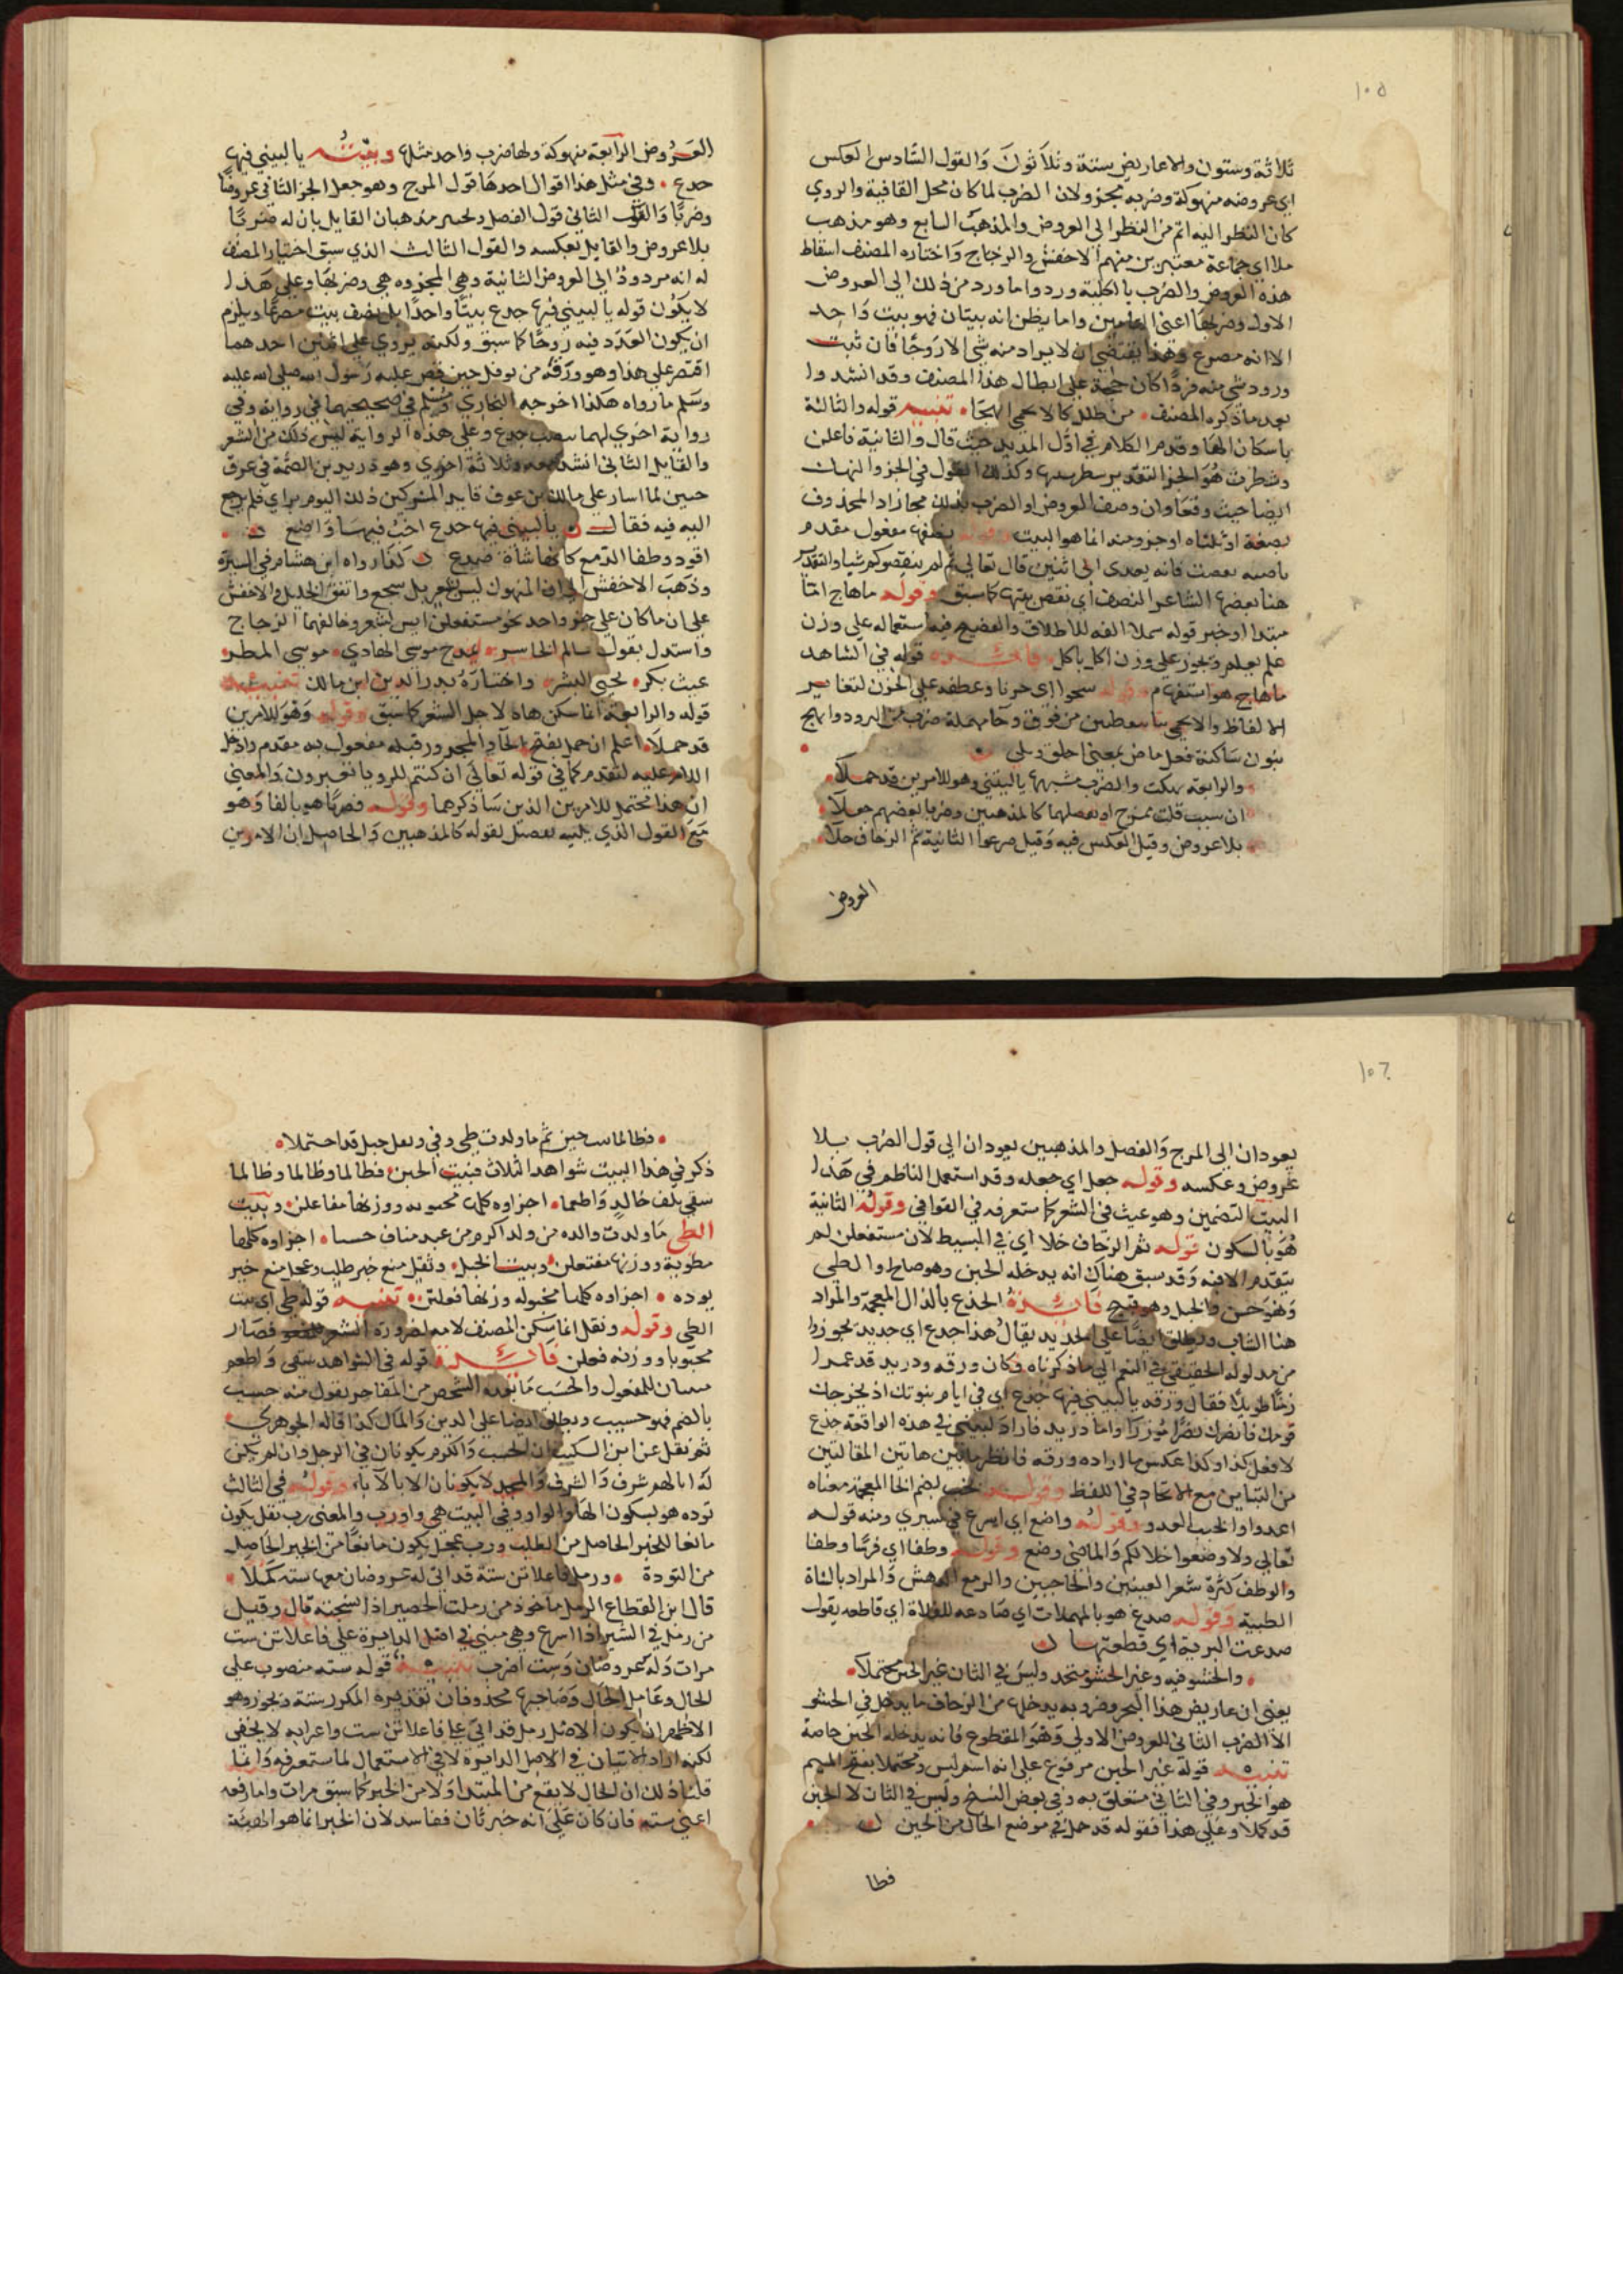 ١٠٥
ثلاثة وستون والاعاريض ستة وثلاثون والقول السادس العكس
اي عروضه منهوكة وضربه مجزو ولان الضرب لما كان محل القافية والروي
كان النظر اليه اتم من النظر الى العروض والمذهب السابع وهو مذهب
ملا اي جماعة معتبرين منهم الاخفش والزجاج واختاره المصنف اسقاط
هذه العروض والضرب بالكلية وردوا ما ورد من ذلك الى العروض
الاولى وضربها اعني واما يظن انه بيتان فهو بيت واحد
الا انه مصرع وهذا يقتضي ان لا يراد منه شي الا زوجا فان ثبت
ورود شي منه فردا كان حجة على ابطال هذا المصنف وقد انشدوا
بعد ما ذكره المصنف من طلل كالاتحمي انهجا تنبيه قوله والثالثة
باسكان الها وقدم الكلام في اول المديد حيث قال والثانية فاعلن
وشطرت هو الجز التقدير وكذلك القول في الجز والنهك
ايضا حيث وقعا وان وصف العروض او الضرب بذلك مجاز اذ المحذوف
نصفه او ثلثاه او جزو منه انما هو البيت وقوله مفعول مقدم
ناصبه فانه يعدى الى اثنين قال تعالى ثم لم ينقصوكم شيا والتقدير
هنا بعضها الشاعر النصف اي نقص بيتها كما سبق وقوله ماهاج اما
مبتدا او خبر قوله الفه للاطلاق والفصيح فيه استعماله على وزن
علم يعلم ويجوز على وزن اكل ياكل فائدة قوله في الشاهد
ماهاج هو استفهام وقوله شجوا اي حزنا وعطفه على الحزن لتغاير
الالفاظ والاتحمي من فوق وحا مهملة ضرب من البرود وانهج
بنون ساكنة فعل ماض بمعنى اخلق وبلي
والرابعة نهكت والضرب مشبهها ياليتني وهو للامرين قد حملا
ان سبب قلت بمزج او بفصلهما كالمذهبين وضربا بعضهم جعلا
بلا عروض وقيل العكس فيه وقيل صرعوا الثانية ثم الزحاف حلا
العروض
العروض الرابعة منهوكة ولها ضرب واحد مثلها وبيته ياليتني فيها
جدع وفي مثل هذا اقوال احدها قول المزج وهو جعل الجز الثاني عروضا
وضربا والقول الثاني قول الفصل مذهبان القايل بان له ضربا
بلا عروض والقايل بعكسه والقول الثالث الذي سبق اختيار المصنف
له انه مردود الى العروض الثانية وهي المجزوه هي وضربها وعلى هذا
لا يكون قوله ياليتني فيها جدع بيتا واحدا بل نصف بيت مصرعا ويلزم
ان يكون العدد فيه زوجا كما سبق ولكنه يروي على اثنين احدهما
اقتصر على هذا وهو ورقه من نوفل حين قص عليه رسول الله صلى الله عليه
وسلم ما رواه هكذا اخرجه البخاري ومسلم في صحيحيهما في رواية وفي
رواية اخري لهما بنصب جدع وعلى هذه الرواية ليس ذلك من الشعر
والقايل الثاني انشد معه وثلاثة اخري وهو دريد بن الصمة في غزوة
حنين لما اشار على مالك بن عوف قايد المشركين ذلك اليوم براي فلم يرجع
اليه فيه فقال ياليتني فيها جدع اخب فيها واضع
اقود وطفا الزمع كانها شاة صدع كذا رواه ابن هشام في السيرة
وذهب الاخفش الى ان المنهوك ليس بشعر بل سجع واتفق الخليل والاخفش
على ان ما كان على جز واحد نحو مستفعلن ليس بشعر وخالفهما الزجاج
واستدل بقول سالم الخاسر يمدح موسى الهادي موسى المطر
غيث بكر يحيي البشر واختاره بدر الدين ابن مالك تنبيه
قوله والرابعة انما سكن هاه لاجل الشعر كما سبق وقوله وهو للامرين
قد حملا اعلم ان حمل بفتح الحا والمجرور قبله مفعول به مقدم وادخل
اللام عليه لتقدم كما في قوله تعالى ان كنتم للرويا تعبرون والمعنى
ان هذا محتمل للامرين الذين ساذكرهما وقوله فضربا هو بالفا وهو
مع القول الذي يليه تفصيل لقوله كالمذهبين والحاصل ان الامرين
١٠٦
يعودان الى المزج والفصل والمذهبين يعودان الى قول الضرب بلا
عروض وعكسه وقوله جعل اي جعله وقد استعمل الناظم في هذا
البيت التضمين وهو عيب في الشعر كما ستعرفه في القوافي وقوله الثانية
هو بالسكون قوله ثم الزحاف خلا اي في البسيط لان مستفعلن لم
يتقدم الا فيه وقد سبق هناك انه يدخله الخبن وهو صالح والطي
وهو حسن والخبل وهو قبيح فائدة الجذع بالذال المعجمة والمراد
هنا الشاب ويطلق ايضا على الجديد يقال هذا جدع اي جديد تجوزوا
من مدلوله الحقيقي في النعم الى ما ذكرناه فكان ورقه ودريد قد عمرا
زمنا طويلا فقال ورقه ياليتني فيها جدع اي في ايام نبوتك اذ يخرجك
قومك فانصرك نصرا مؤزرا واما دريد فاراد ليتني في هذه الواقعة جدع
لافعل كذا وكذا عكس ما اراده ورقه فانظر ما بين هاتين المقالتين
من التباين مع الاتحاد في اللفظ وقوله نخب بضم الخا المعجمة معناه
اعدوا والخبب العدو وقوله واضع اي اسرع في سيري ومنه قوله
تعالى ولا وضعوا خلالكم والماضي وضع وقوله وطفا اي فرسا وطفا
والوطف كثرة شعر العينين والحاجبين والزمع الدهش والمراد بالشاة
الظبية وقوله صدع هو بالمهملات اي صادعه للفلاة اي قاطعه يقول
صدعت البرية اي قطعتها
والحشو فيه وغير الحشو متحد وليس في الثان غير الخبن محتملا
يعنى ان عاريض هذا البحر وضروبه يدخلها من الزحاف ما يدخل في الحشو
الا الضرب الثاني للعروض الاولى وهو المقطوع فانه يدخله الخبن خاصة
تنبيه قوله غير الخبن مرفوع على انه اسم ليس ومحتملا بفتح الميم
هو الخبر وفي الثاني متعلق به وفي بعض النسخ وليس في الثان لا الخبن
قد كملا وعلى هذا فقوله قد حمل في موضع الحال من الخبن
فطا
فطالما خبن ثم ما ولدت طي وفي ونقل خبل قد احتملا
ذكر في هذا البيت شواهد الثلاث فبيت الخبن فطالما وطالما وطالما
سقي بكف خالد واطعما اجزاوه كلها مخبونه ووزنها مفاعلن وبيت
الطي ما ولدت والده من ولد اكرم من عبد مناف حسبا اجزاوه كلها
مطوية ووزنها مفتعلن وبيت الخبل وثقيل منع خير طلب وعجل منع خير
توده اجزاوه كلها مخبوله وزنها فعلتن تنبيه قوله طي اي بيت
الطي وقوله ونقل انما سكن المصنف لامه لضرورة الشعر فصار
مخبونا ووزنه فعلن فائدة قوله في الشواهد سقى واطعم
مبنيان للمفعول والحسب ما يعده الشخص من المفاخر تقول منه حسب
بالضم فهو حسيب ويطلق ايضا على الدين والمال كذا قاله الجوهري
ثم نقل عن ابن السكيت ان الحسب والكرم يكونان في الرجل وان لم يكن
له ابا لهم شرف والشرف والمجد لا يكونان الا بالآباء وقوله في الثالث
توده هو بسكون الها والواو وفي البيت هي واو رب والمعنى رب نقل يكون
مانعا للخير الحاصل من الطلب ورب عجل يكون مانعا من الخير الحاصل
من التودة ورمل فاعلاتن ستة قد اتى له عروضان معها ستة كملا
قال ابن القطاع الرمل ماخوذ من رملت الحصير اذا نسجته قال وقيل
من رمل في السير اذا اسرع وهي مبنية في اصل الدايرة على فاعلاتن ست
مرات وله عروضان وست اضرب تنبيه قوله سته منصوب على
الحال وعامل الحال وصاحبها محذوفان تقديره المكرر ستة ويجوز وهو
الاظهر ان يكون الاصل رمل قد اتى على فاعلاتن ست واعرابه لا يخفى
لكنه اراد الاتيان في الاصل الدايرة لا في الاستعمال لما ستعرفه وانما
قلنا ذلك ان الحال لا يقع من المبتدا ولا من الخبر كما سبق مرات واما رفعه
اعني سته فان كان على انه خبر ثان ففاسد لان الخبر انما هو الصفة